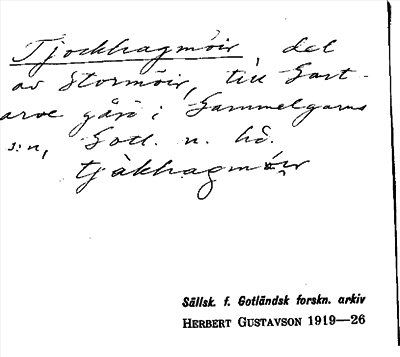 Tjockhagmöir, del
av Stormöir, till Gart-
arve gård i Gammelgarns
s:n, Gotl. n. hd.
tjåkhagmöir
Sällsk. f. Gotländsk forskn. arkiv
HERBERT GUSTAVSON 1919—26